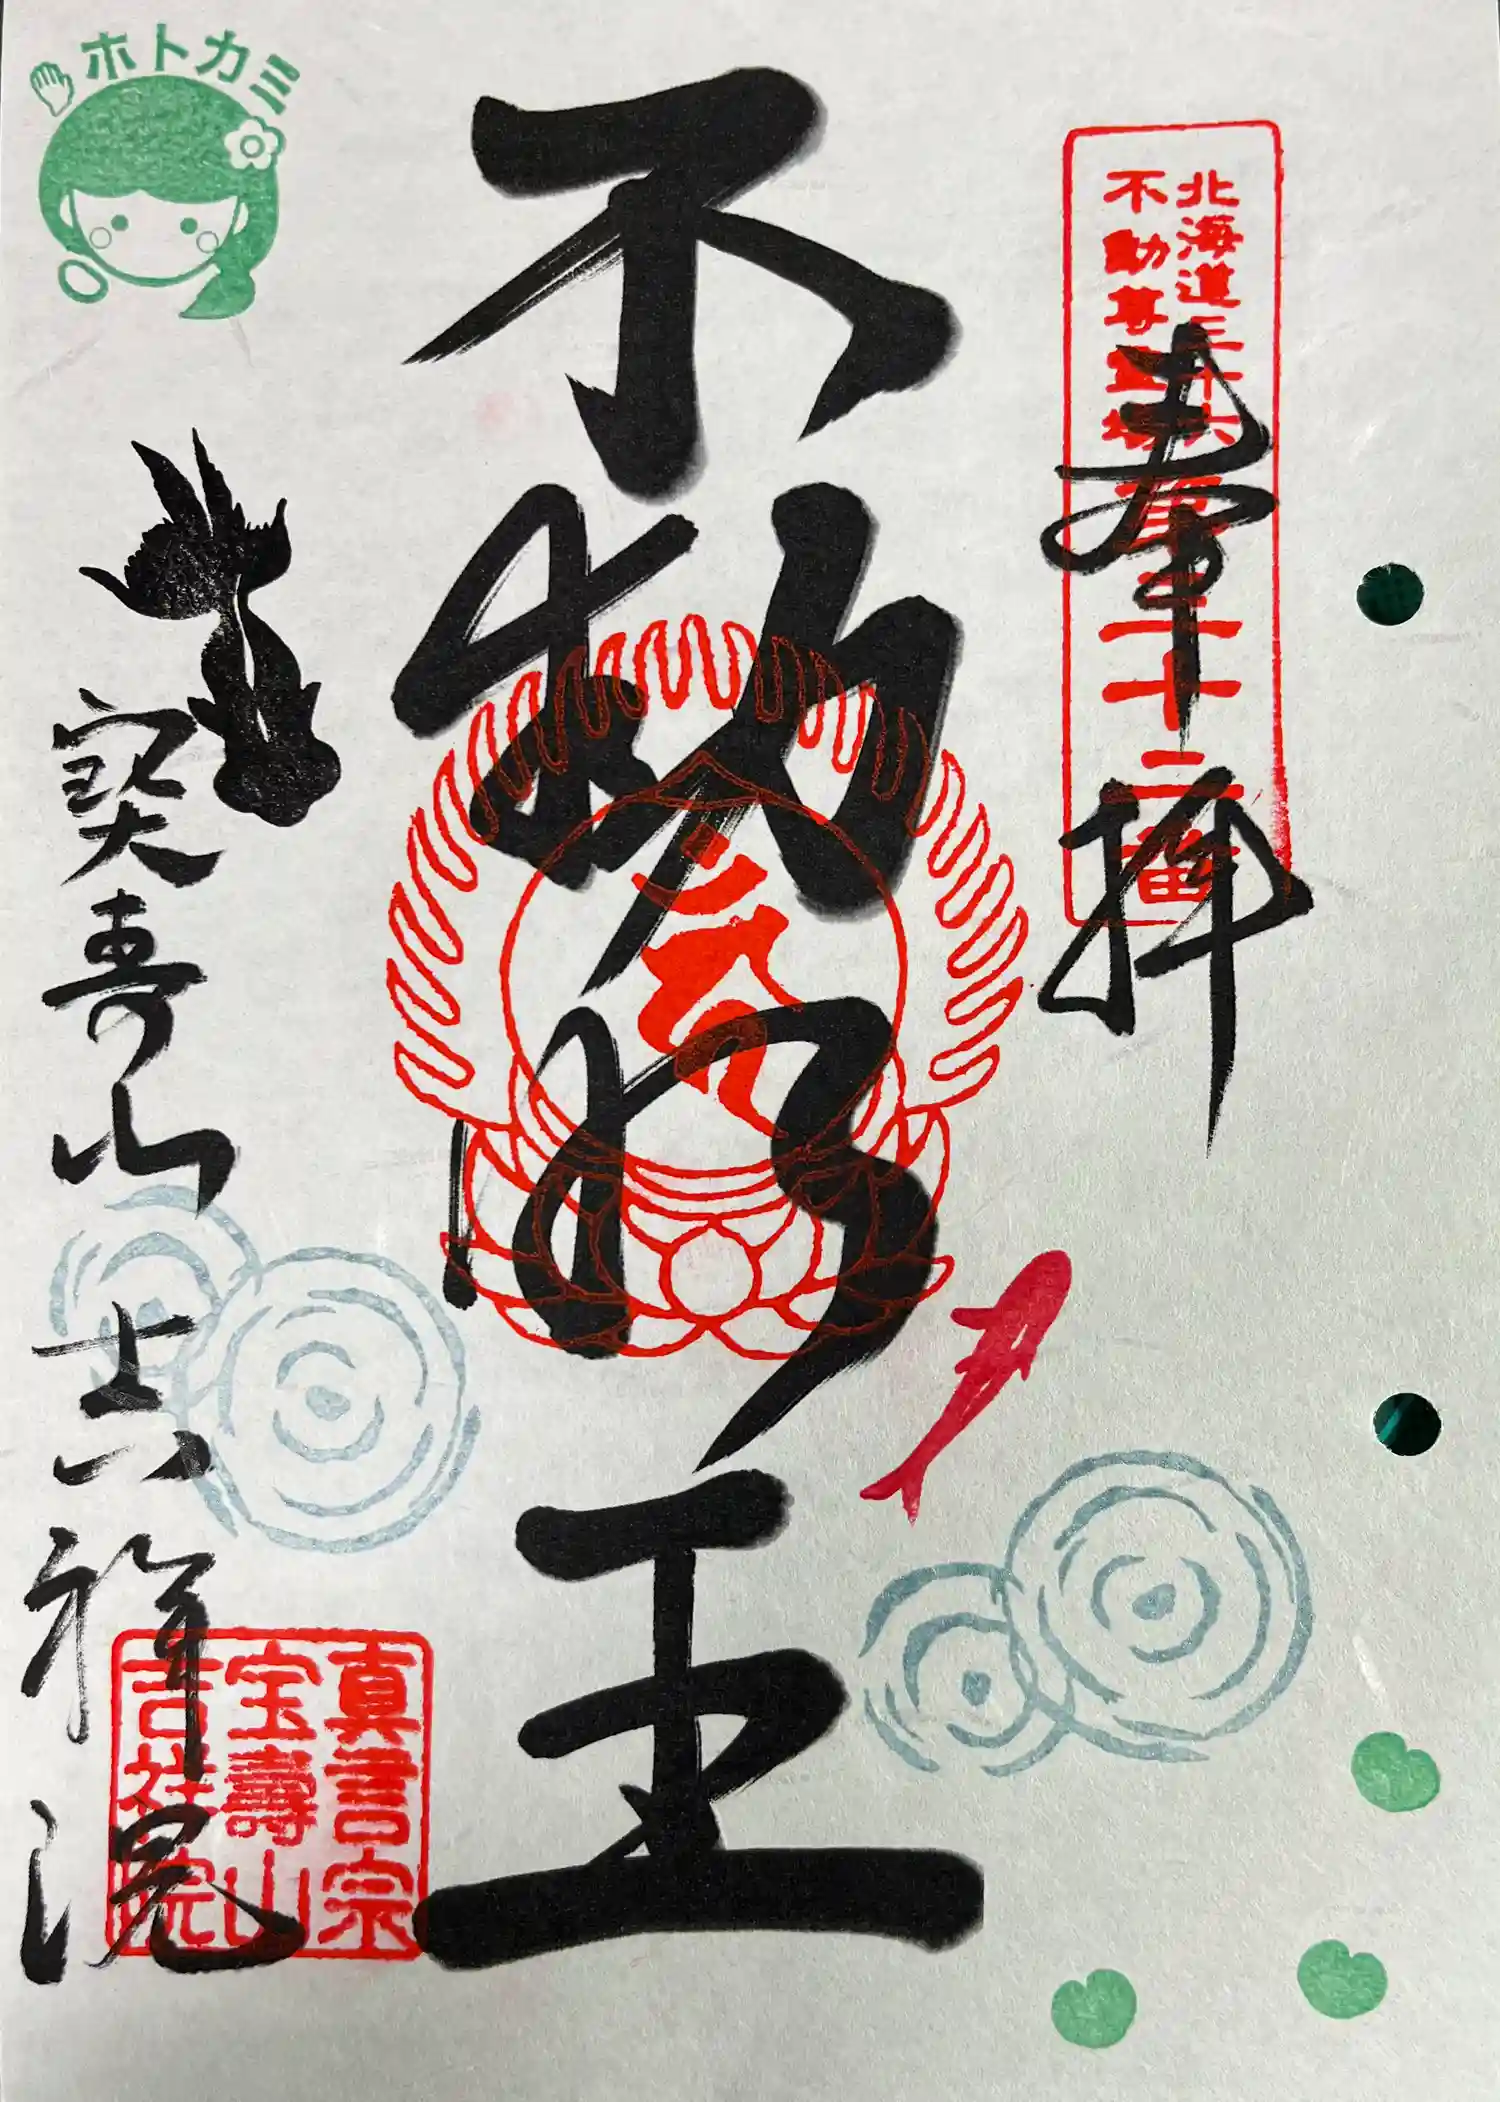 ホトカミ
北海道三十六
不動尊霊場
第二十二番
奉拝
不動明王
寶寿山
吉祥院
真言宗
宝壽山
吉祥院